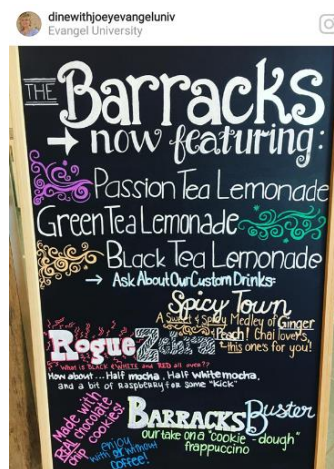 dinewithjoeyevangeluniv
Evangel University
THE Barracks
now featuring:
Passion Tea Lemonade
Green Tea Lemonade
Black Tea Lemonade
Ask About Our Custom Drinks:
Spicy Town
A Sweet & Spicy Medley of Ginger
Peach! Chai lovers,
this one's for you!
Rogue Zebra
What is BLACK & WHITE and RED all over??
How about... Half mocha, Half white mocha,
and a bit of Raspberry for some "kick"
Made with
REAL chocolate
chip cookies!
BARRACKS Buster
our take on a "cookie-dough"
frappuccino
enjoy
with or without
coffee!